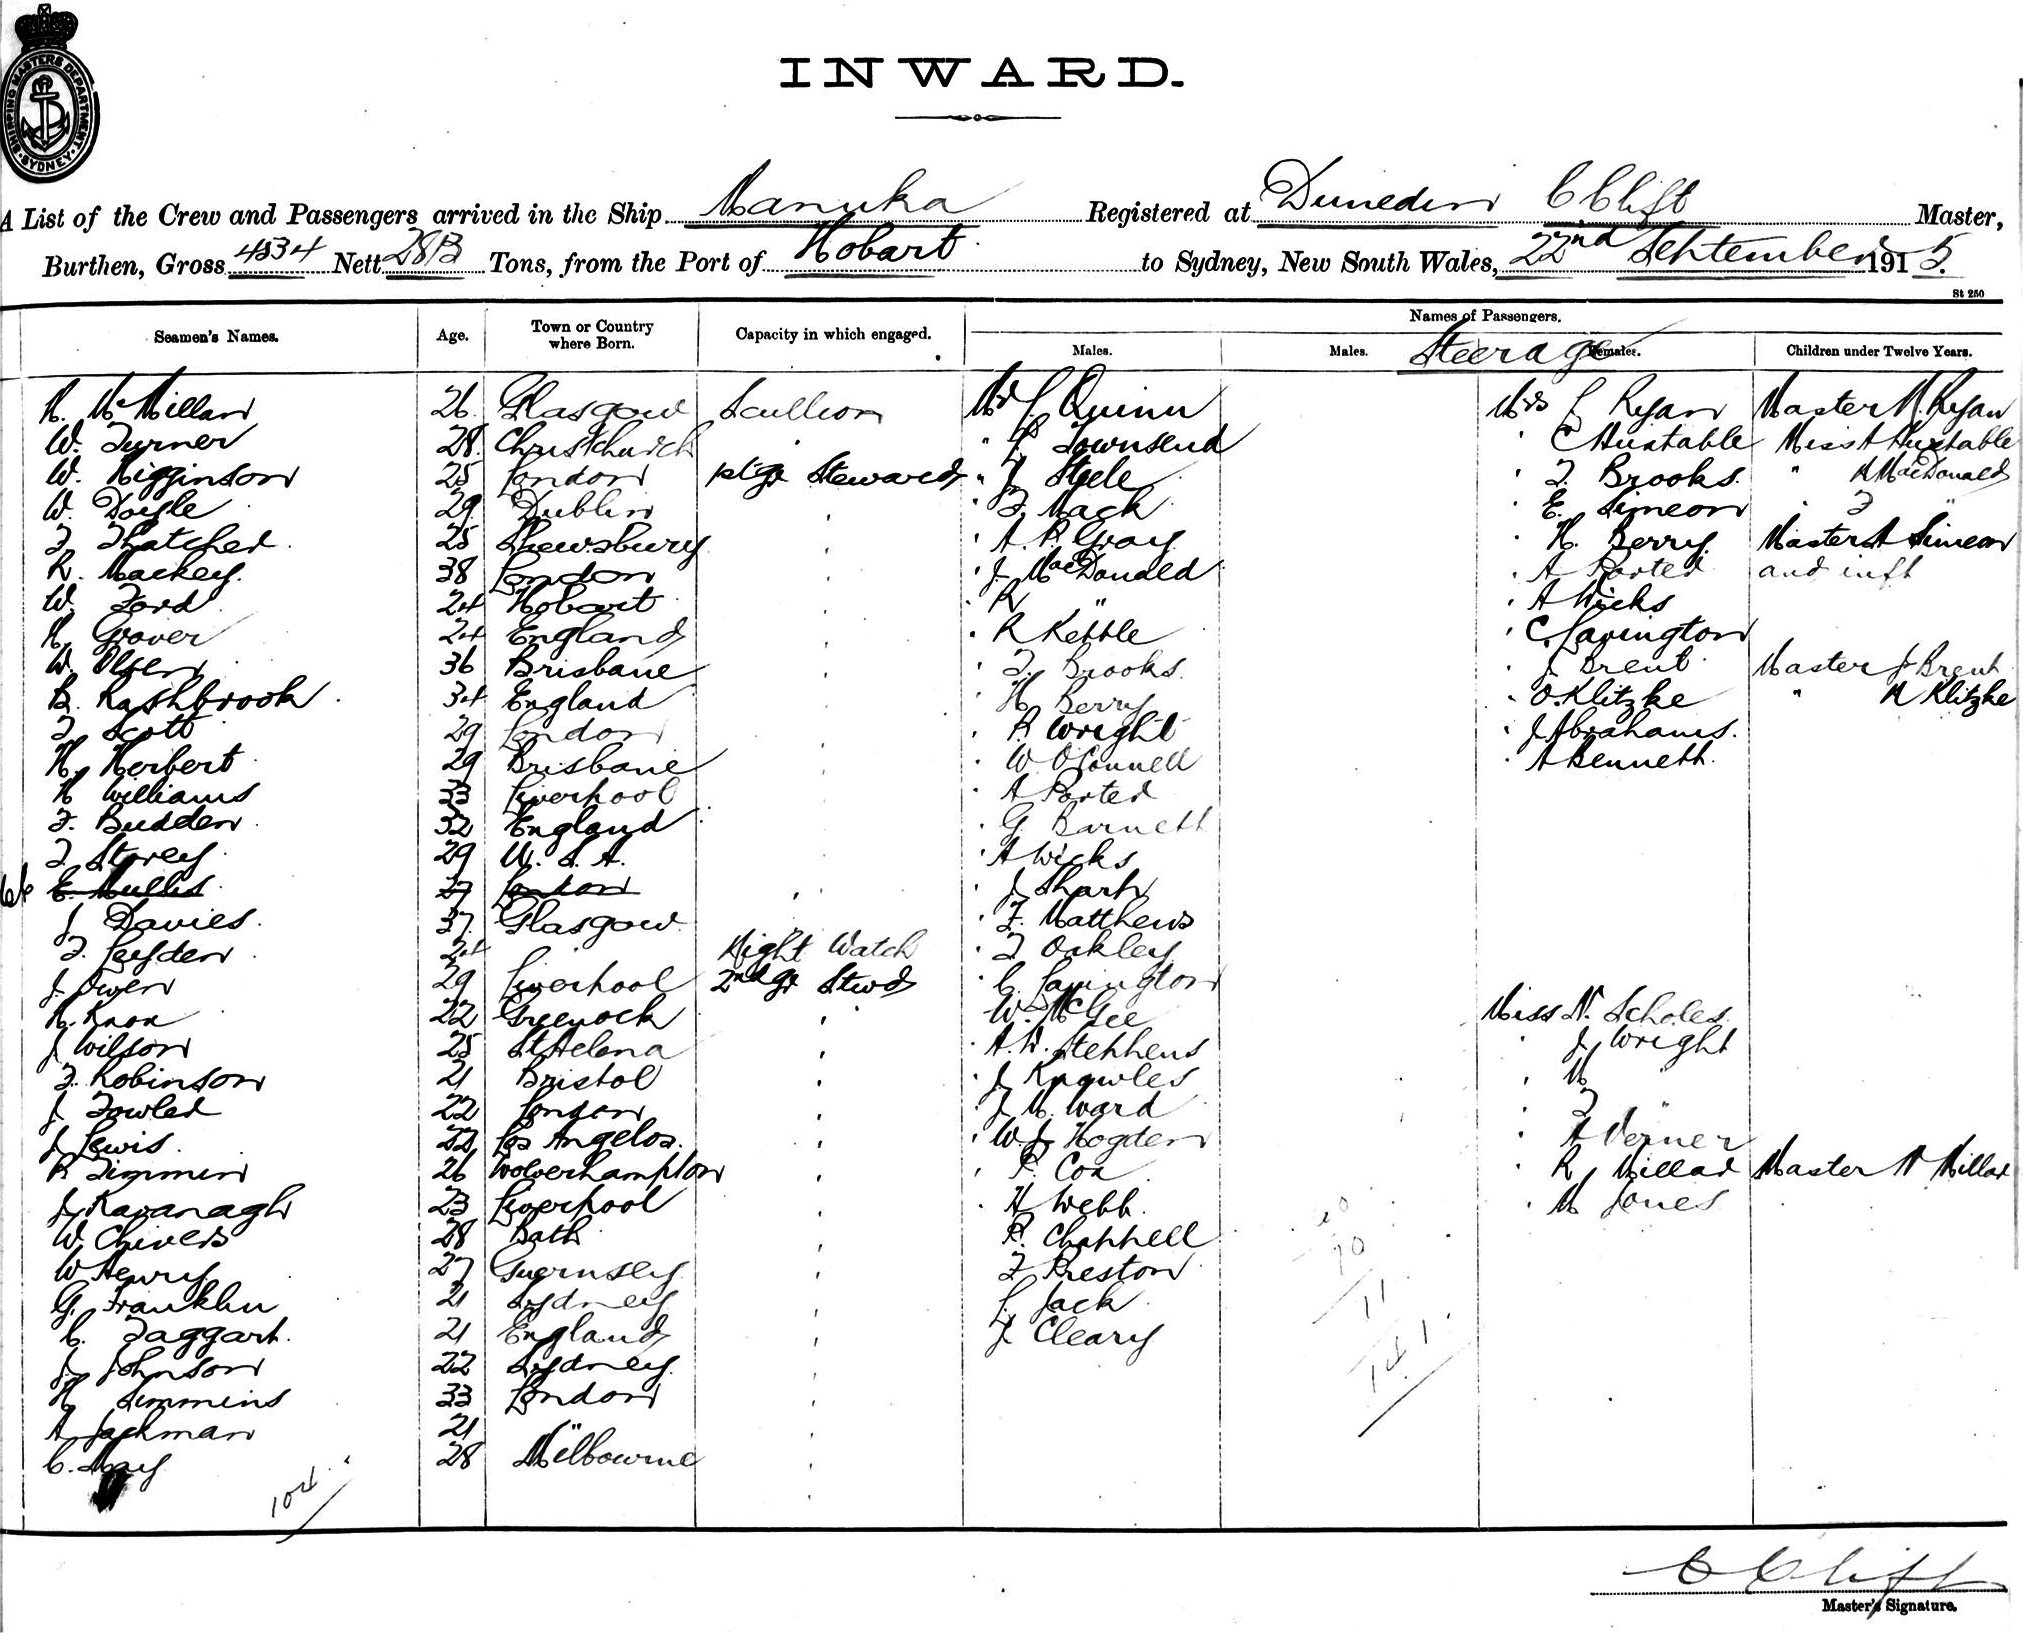 SHIPPING MASTERS DEPARTMENT
SYDNEY
INWARD.
A List of the Crew and Passengers arrived in the Ship Manuka Registered at Dunedin C Clift Master,
Burthen, Gross 4534 Nett Tons, from the Port of Hobart to Sydney, New South Wales, 22nd September 1915.
St 250
Names of Passengers.
Seamen's Names. Age. Town or Country where Born. Capacity in which engaged. Males. Males. Steerage Females. Children under Twelve Years.
H. McMillan 26 Glasgow Scullion Mr J Quinn Mrs L Ryan Master M. Ryan
W. Turner 28 Christchurch " L Townsend " C Huxtable Miss A Huxtable
W. Higginson 25 London Stewards " J Steele " T. Brooks " H MacDonald
W. Doyle 29 Dublin " T. Mack " E. Simeon " T "
T. Thatcher 25 Shewsbury " A. R. Gray " H. Berry Master A Simeon
R. Mackey 38 London " J. MacDonald " A Porter and inft
W. Ford 24 Hobart " R " " A Wicks
H. Grover 24 England " R Kebble " C. Lavington
W. Olsen 36 Brisbane " T. Brooks " J Brent Master J Brent
B. Rashbrook 34 England " H Berry " O. Klitzke " H Klitzke
T. Scott 29 London " R Wright " J Abrahams.
H. Herbert 29 Brisbane " W OConnell " A Bennett
H Williams 33 Liverpool " A Porter
F. Budden 32 England " G Barnett
T. Storey 29 U. S. A. " A Wicks
E. Mullis 27 London " J Sharp
J Davies 37 Glasgow " F. Matthews
T. Leyden 24 Night Watch " T Oakley
J. Owen 29 Liverpool 2nd Stwds " C Lavington
H. Knox 22 Greenock " W. McGee Miss N. Scholes
J Wilson 25 St Helena " A. W. Stephens " J Wright
T. Robinson 21 Bristol " J. Knowles " M "
J. Fowler 22 London " J M. Ward " T "
J Lewis 22 Los Angelos " W. J. Hogden " A Verner
R Timmin 26 Wolverhampton " P. Cox " R Millar Master N Millar
J. Kavanagh 23 Liverpool " H Webb " M Jones
W. Chivers 28 Bath " R. Chappell
W Henry 27 Guernsey " T Preston
G. Franklin 21 Sydney " L. Jack
C. Taggart 21 England " J Cleary
J. Johnson 22 Sydney "
H Simmins 33 London "
A Jackman 21 " "
C. May 28 Melbourne "
104
70
11
141
C Clift
Master's Signature.